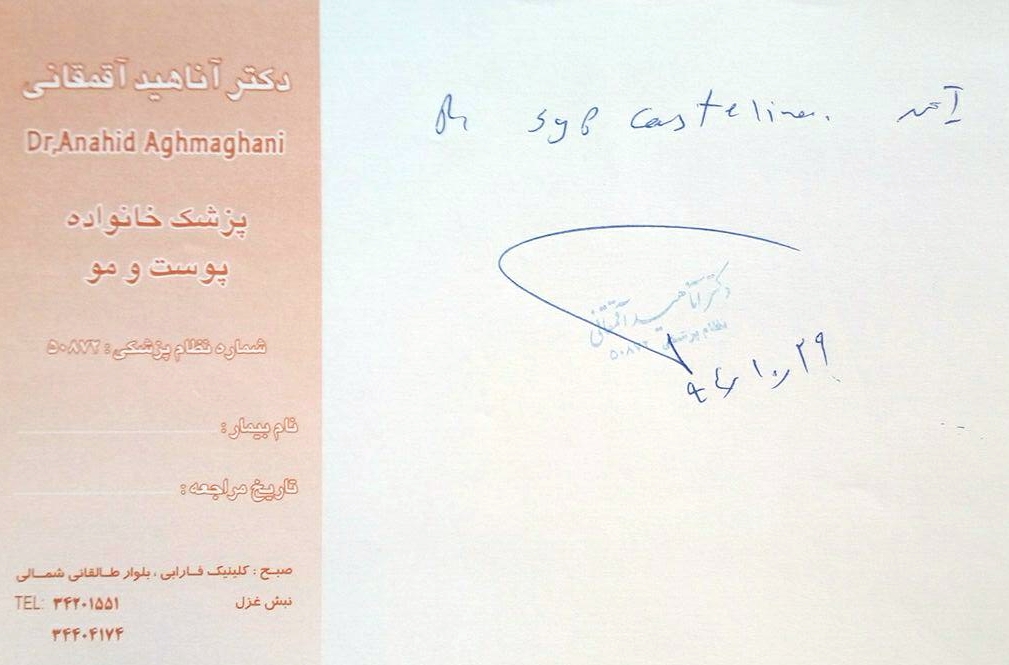 دکتر آناهید آقمقانی
Dr,Anahid Aghmaghani
پزشک خانواده
پوست و مو
شماره نظام پزشکی: ۵۰۸۷۲
نام بیمار:
تاریخ مراجعه:
صبح: کلینیک فارابی، بلوار طالقانی شمالی
نبش غزل
TEL: ۳۴۲۰۱۵۵۱
۳۴۴۰۴۱۷۴
syp
دکتر آناهید آقمقانی
نظام پزشکی ۵۰۸۷۲